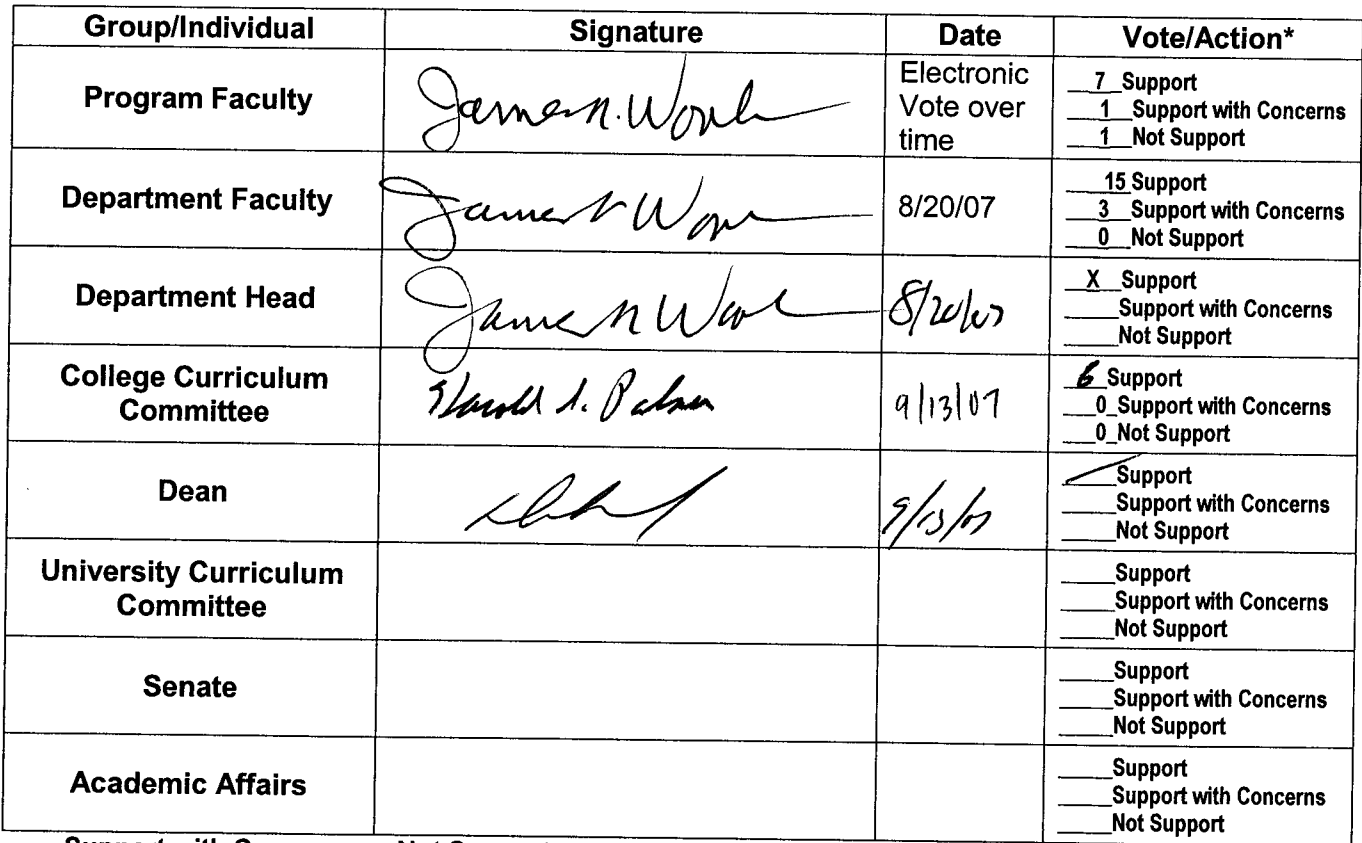 Group/Individual Signature Date Vote/Action*
Program Faculty
Electronic
Vote over
time
7 Support
1 Support with Concerns
1 Not Support
Department Faculty
8/20/07
15 Support
3 Support with Concerns
0 Not Support
Department Head
8/20/07
X Support
Support with Concerns
Not Support
College Curriculum
Committee
9/13/07
6 Support
0 Support with Concerns
0 Not Support
Dean
9/13/07
Support
Support with Concerns
Not Support
University Curriculum
Committee
Support
Support with Concerns
Not Support
Senate
Support
Support with Concerns
Not Support
Academic Affairs
Support
Support with Concerns
Not Support